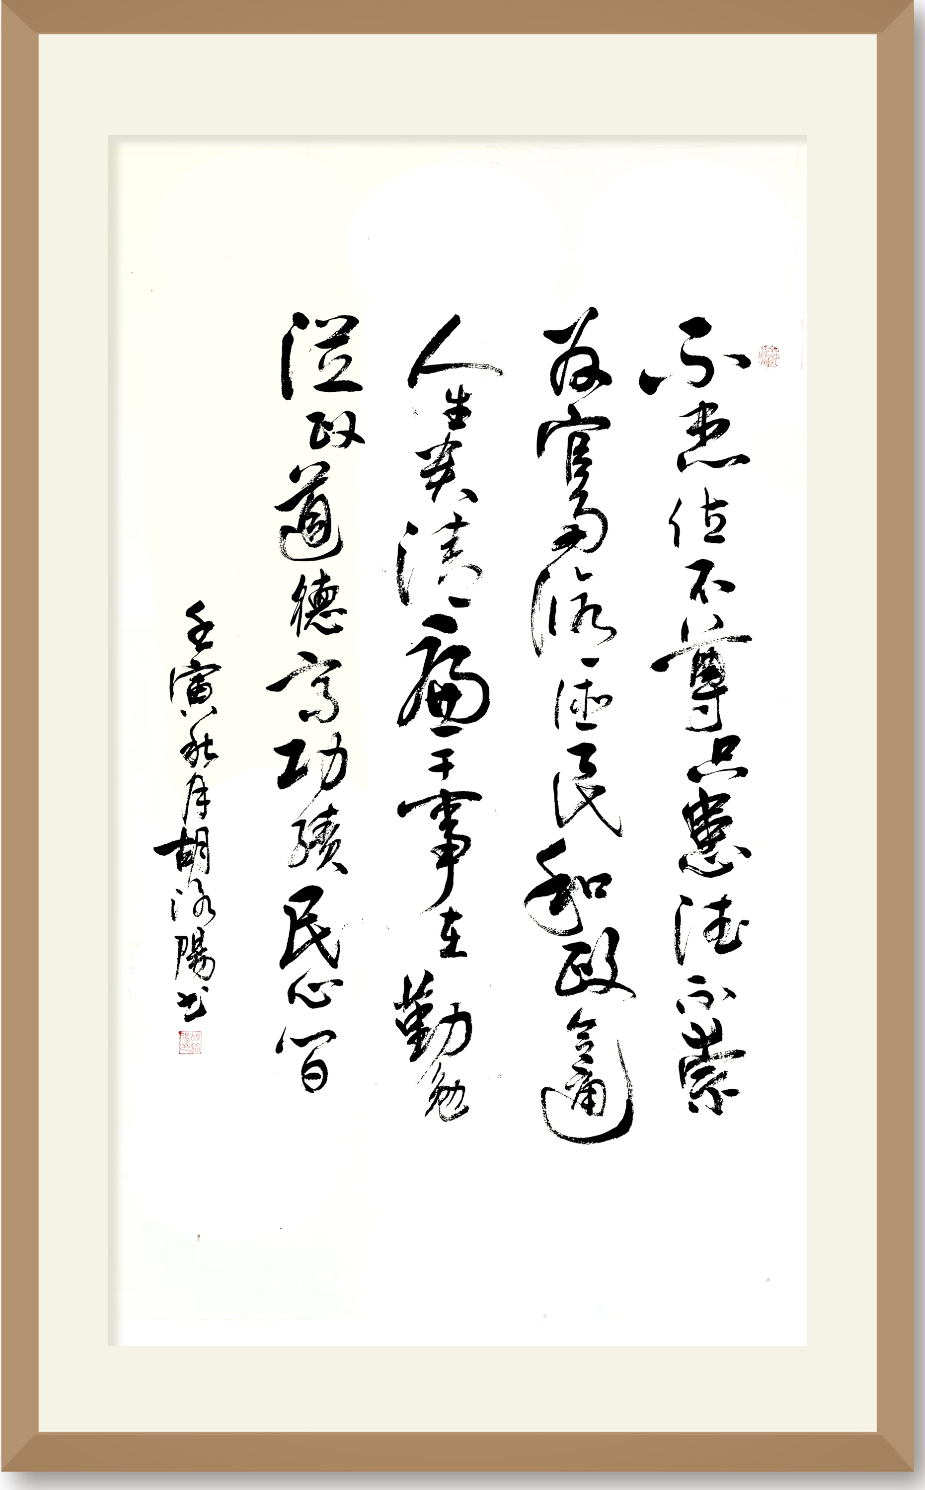 不患位不尊只患德不崇
为官民和政令通
人生贵清廉干事在勤勉
從政道德高功績民心
壬寅秋月胡洛陽书